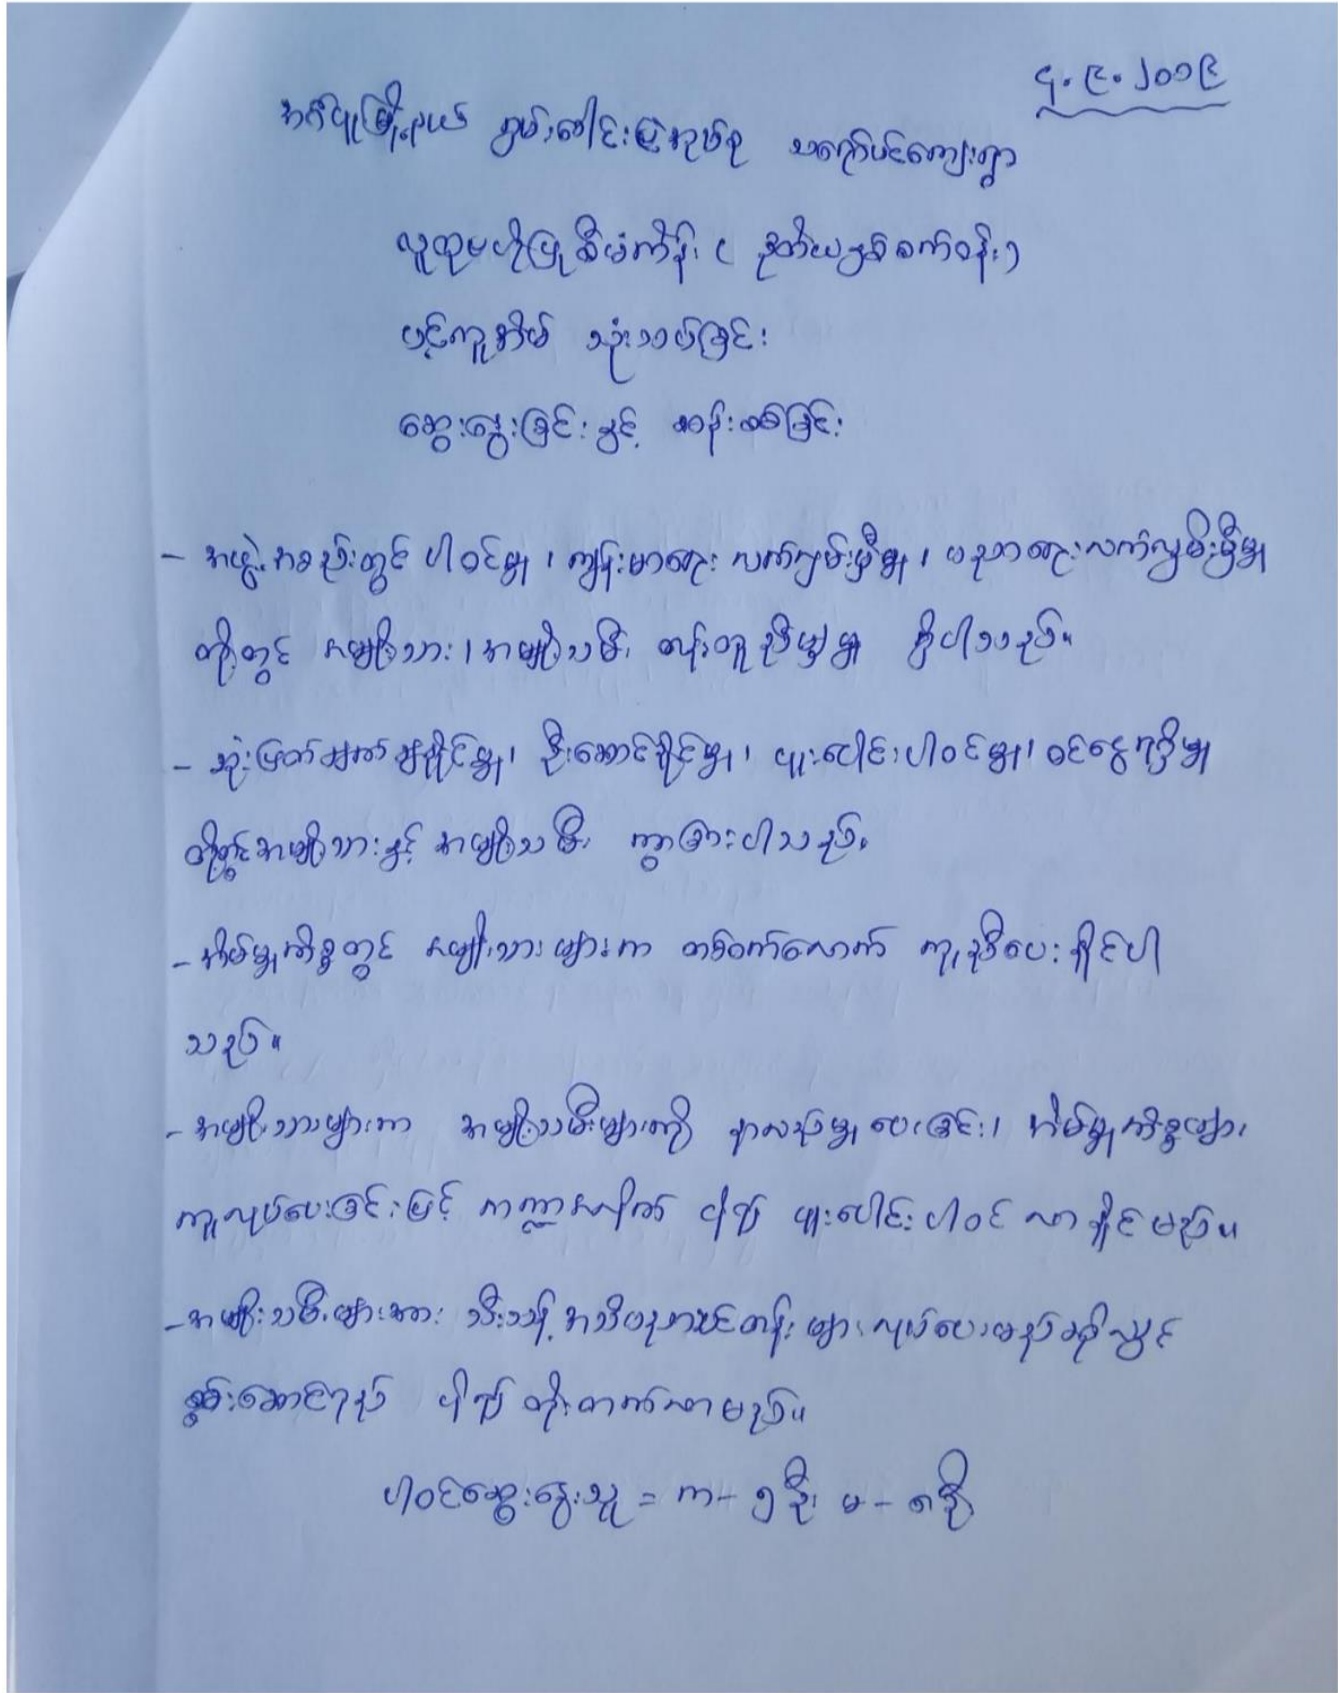 ၄.၉.၂၀၁၉
အင်္ဂပူမြို့နယ် ကျွမ်းခေါင်းမြဲအုပ်စု သရော်ပင်ကျေးရွာ
လူထုဗဟိုပြုစီမံကိန်း ( ဒုတိယနှစ်စက်ဝန်း )
ပင့်ကူအိမ် သုံးသပ်ခြင်း
ဆွေးနွေးခြင်းနှင့် ဆန်းစစ်ခြင်း
- အဖွဲ့အစည်းတွင် ပါဝင်မှု၊ ကျန်းမာရေး လက်လှမ်းမှီမှု၊ ပညာရေးလက်လှမ်းမှီမှု
တို့တွင် အမျိုးသား၊ အမျိုးသမီး တန်းတူညီမျှမှု ရှိပါသည်။
- ဆုံးဖြတ်ချက်ချနိုင်မှု၊ ဦးဆောင်နိုင်မှု၊ ပူးပေါင်းပါဝင်မှု၊ ဝင်ငွေရရှိမှု
တို့တွင် အမျိုးသားနှင့် အမျိုးသမီး ကွာခြားပါသည်။
- အိမ်မှုကိစ္စတွင် အမျိုးသားများက တစ်ဝက်လောက် ကူညီပေးနိုင်ပါ
သည်။
- အမျိုးသားများက အမျိုးသမီးများကို နားလည်မှုပေးခြင်း၊ အိမ်မှုကိစ္စများ
ကူလုပ်ပေးခြင်းဖြင့် ကဏ္ဍအလိုက် ပိုမို ပူးပေါင်းပါဝင် လာနိုင်မည်။
- အမျိုးသမီးများအား သီးသန့် အသိပညာသင်တန်းများ လုပ်ပေးမည်ဆိုလျှင်
စွမ်းဆောင်ရည် ပိုမို တိုးတက်လာမည်။
ပါဝင်ဆွေးနွေးသူ = က - ၅ဦး မ - ၈ဦး